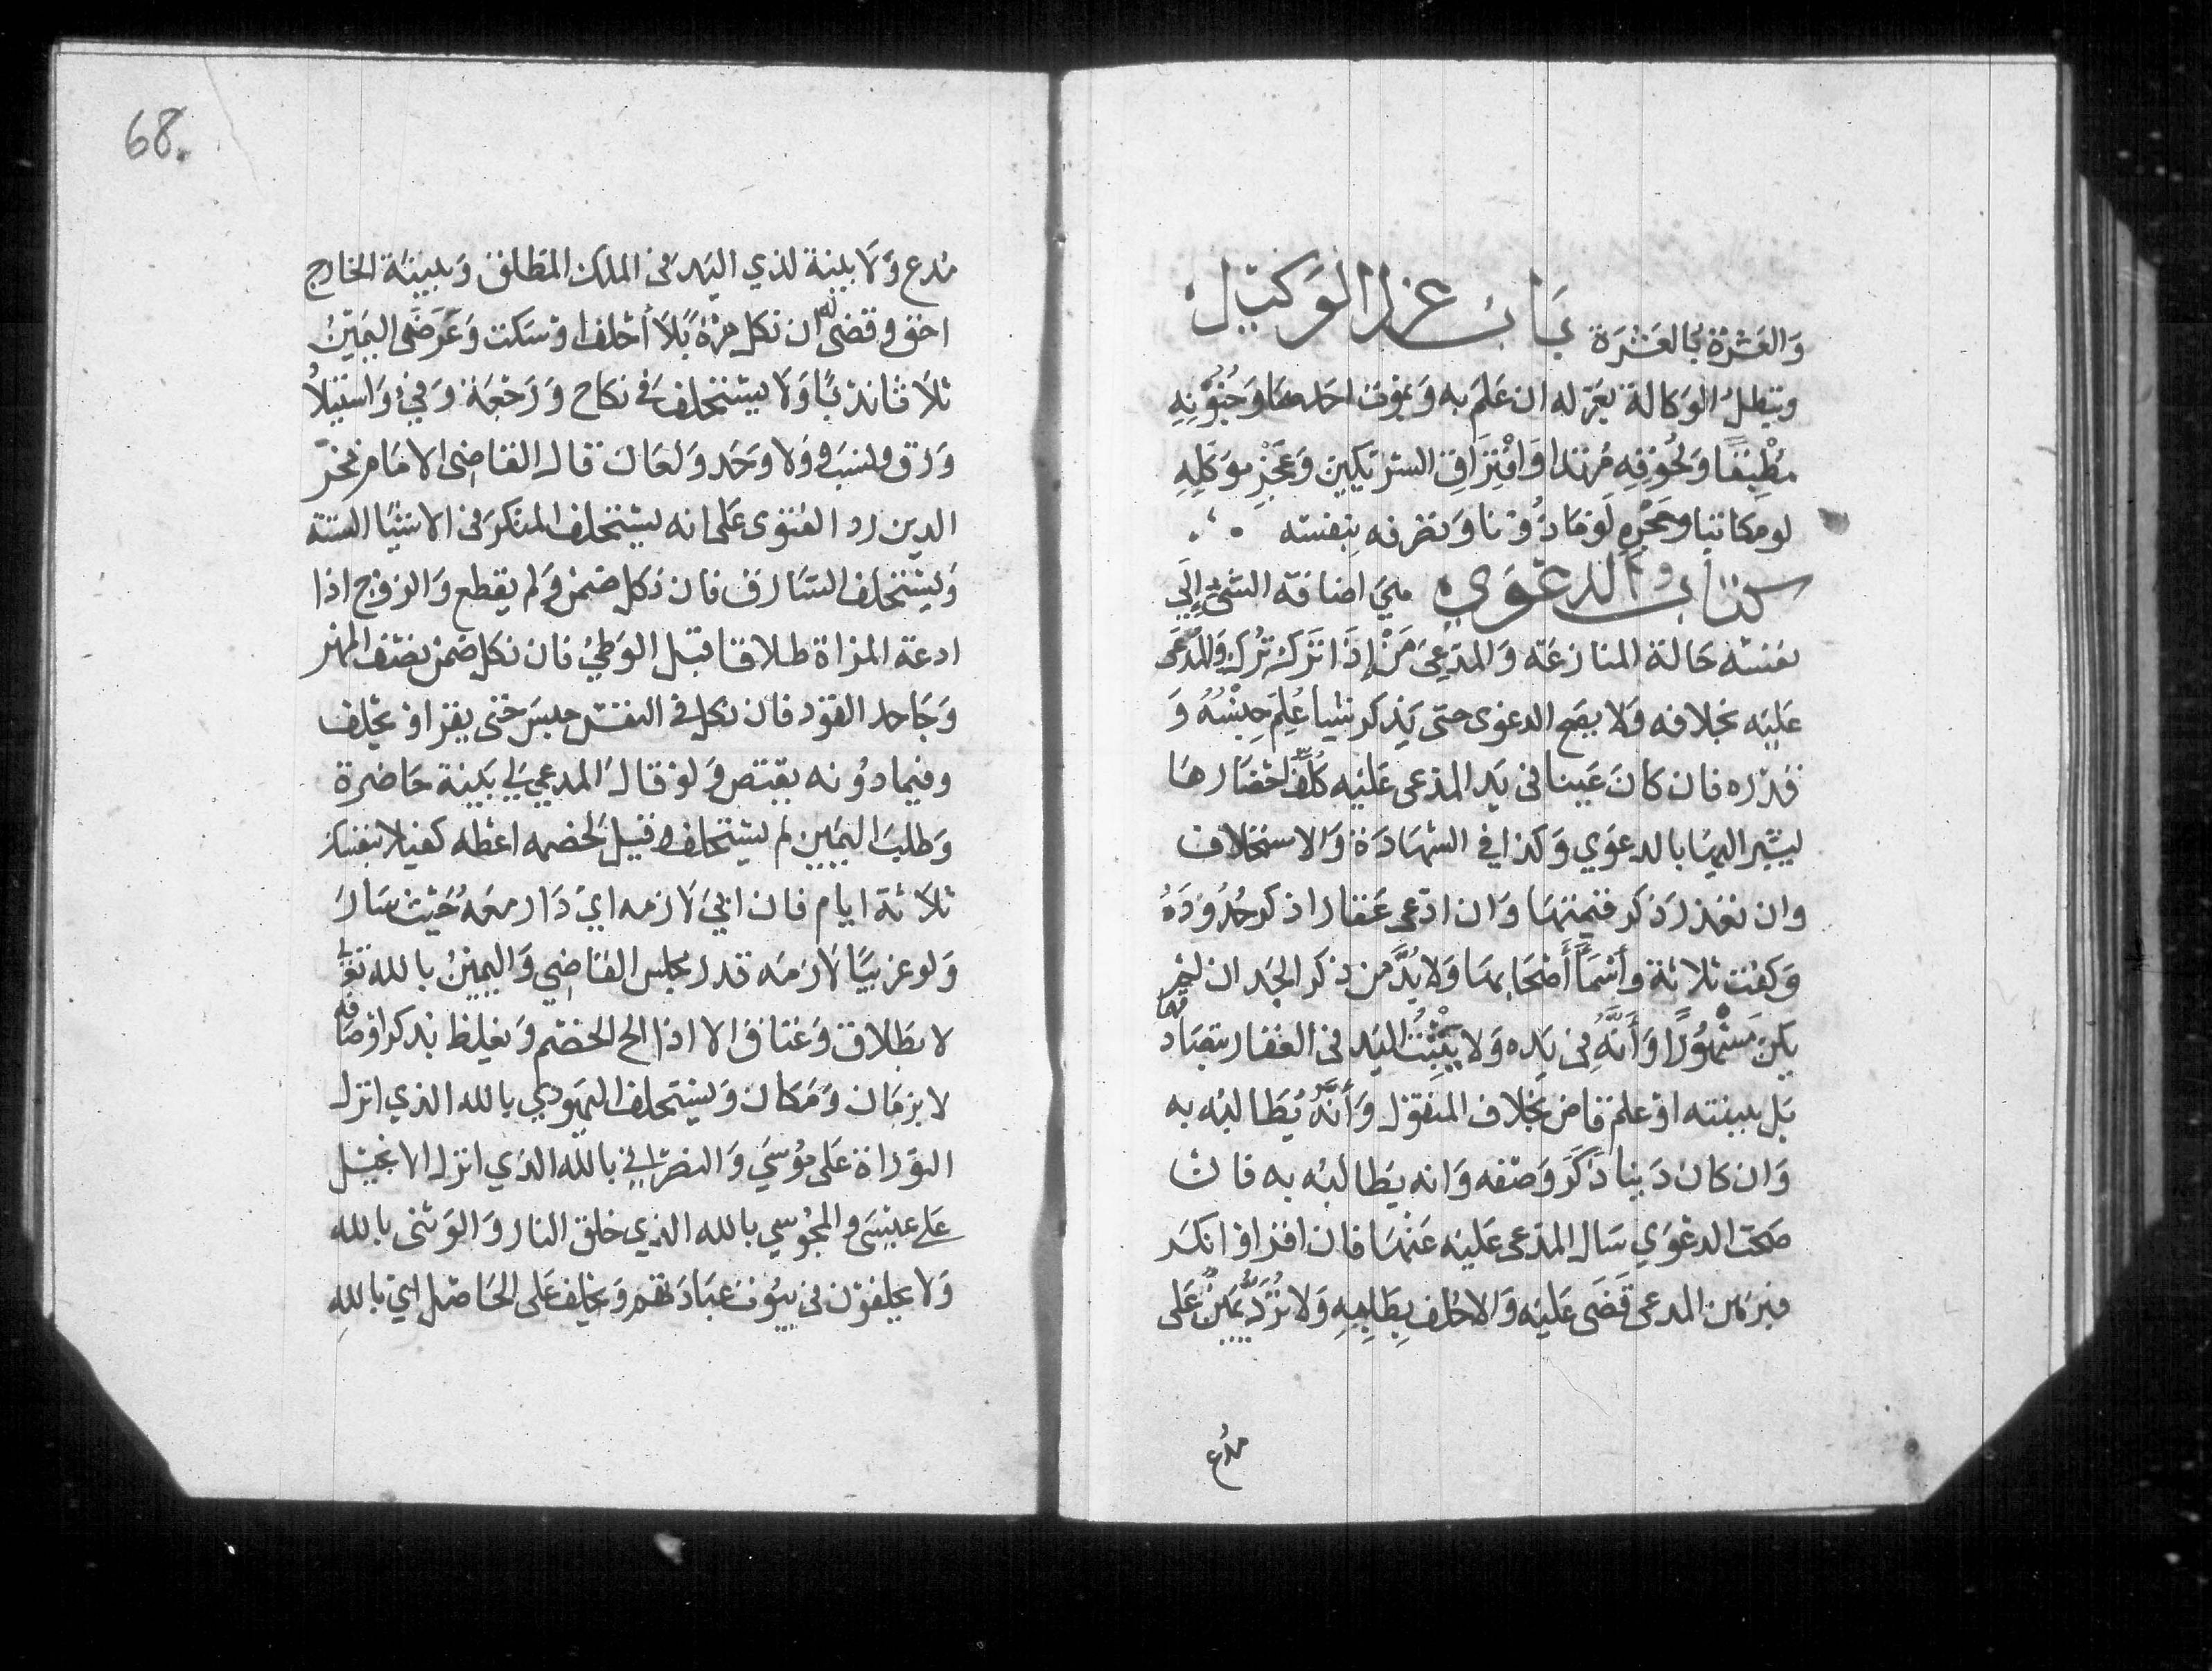 والعشرة بالعشرة باب عزل الوكيل
وتبطل الوكالة بعزله ان علم به وبموت احدهما وجنونه
مطبقا ولحوقه مرتدا وافتراق الشريكين وعجز موكله
لو مكاتبا وحجره لو ماذونا وتصرفه بنفسه
كتاب الدعوي هي اضافة الشئ الي
نفسه حالة المنازعة والمدعي من إذا ترك ترك والمدعى
عليه بخلافه ولا يصح الدعوى حتى يذكر شيا علم جنسه و
قدره فان كان عينا في يد المدعى عليه كلف احضارها
ليشير اليها بالدعوي وكذا في الشهادة والاستحلاف
وان تعذر ذكر قيمتها وان ادعى عقارا ذكر حدوده
وكفت ثلاثة وأسمآ أصحابها ولا بد من ذكر الجد ان لم
يكن مشهورا وأنه في يده ولا يثبت اليد في العقار بتصادقهما
بل ببينته او علم قاض بخلاف المنقول وأنه يطالبه به
وان كان دينا ذكر وصفه وانه يطالبه به فان
صحت الدعوي سال المدعى عليه عنها فان اقر او انكر
فبرهن المدعى قضى عليه والا حلف بطلبه ولا ترد يمين على
مدع
68.
مدع ولا بينة لذي اليد في الملك المطلق وبينة الخارج
احق وقضى له ان نكل مرة بلا أحلف او سكت وعرض اليمين
ثلاثا ندبا ولا يستحلف في نكاح ورجعة وفي واستيلا
ورق ونسب وولا وحد ولعان قال القاضى الامام فخر
الدين رد الفتوى على انه يستحلف المنكر في الاشيا الستة
ويستحلف السارق فان نكل ضمن ولم يقطع والزوج اذا
ادعة المراة طلاقا قبل الوطي فان نكل ضمن نصف المهر
وجاحد القود فان نكل في النفس حبس حتى يقر او يحلف
وفيما دونه يقتص ولو قال المدعي لي بينة حاضرة
وطلب اليمين لم يستحلف وقيل لخصمه اعطه كفيلا بنفسك
ثلاثة ايام فان ابي لازمه اي دار معه حيث سار
ولو غريبا لازمه قدر مجلس القاضي واليمين بالله تعا
لا بطلاق وعتاق الا اذا الح الخصم ويغلظ بذكر اوصافه
لا بزمان ومكان ويستحلف اليهودي بالله الذي انزل
التوراة على موسي والنصراني بالله الذي انزل الانجيل
على عيسى والمجوسي بالله الذي خلق النار والوثنى بالله
ولا يحلفون في بيوت عبادتهم ويحلف على الحاصل اي بالله